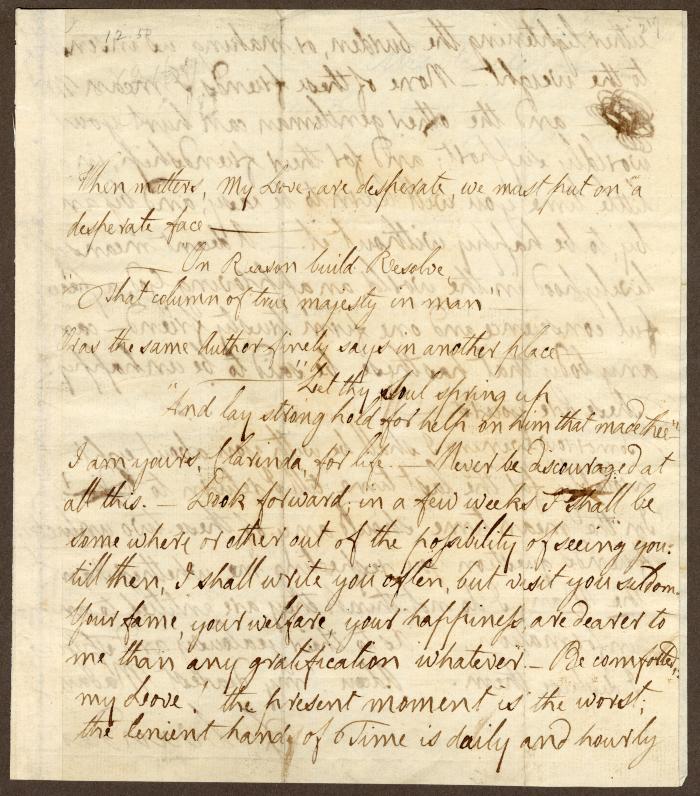 12.50
217
When matters, my Love, are desperate, we must put on "a
desperate face —
— On Reason build Resolve,
That column of true majesty in man —
Or as the same Author finely says in another place
— "Let thy Soul spring up
"And lay strong hold for help on him that made thee"
I am yours, Clarinda, for life. — Never be discouraged at
all this. — Look forward; in a few weeks I shall be
some where or other out of the possibility of seeing you:
till then, I shall write you often, but visit you seldom.
Your fame, your welfare, your happiness, are dearer to
me than any gratification whatever. — Be comforted,
my Love! the present moment is the worst;
the lenient hand of Time is daily and hourly